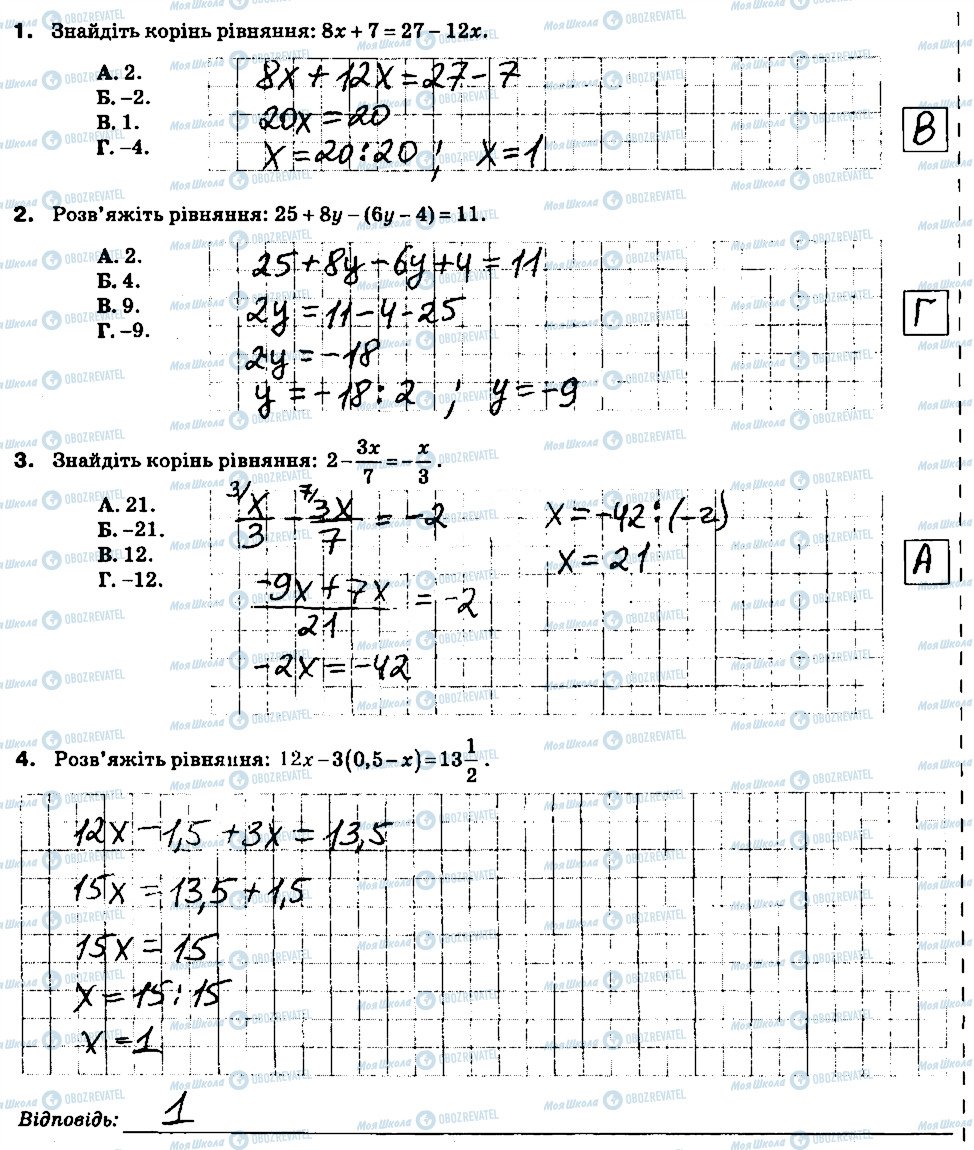 1. Знайдіть корінь рівняння: 8x + 7 = 27 – 12x.
А. 2.
Б. –2.
В. 1.
Г. –4.
8x + 12x = 27 – 7
20x = 20
x = 20 : 20 ; x = 1
В
2. Розв’яжіть рівняння: 25 + 8y – (6y – 4) = 11.
А. 2.
Б. 4.
В. 9.
Г. –9.
25 + 8y – 6y + 4 = 11
2y = 11 – 4 – 25
2y = –18
y = –18 : 2 ; y = –9
Г
3. Знайдіть корінь рівняння: 2 – 3x/7 = – x/3.
А. 21.
Б. –21.
В. 12.
Г. –12.
3/ x/3 – 7/ 3x/7 = –2
(–9x + 7x)/21 = –2
–2x = –42
x = –42 : (–2)
x = 21
А
4. Розв’яжіть рівняння: 12x – 3(0,5 – x) = 13 1/2.
12x – 1,5 + 3x = 13,5
15x = 13,5 + 1,5
15x = 15
x = 15 : 15
x = 1
Відповідь: 1
Моя Школа OBOZREVATEL